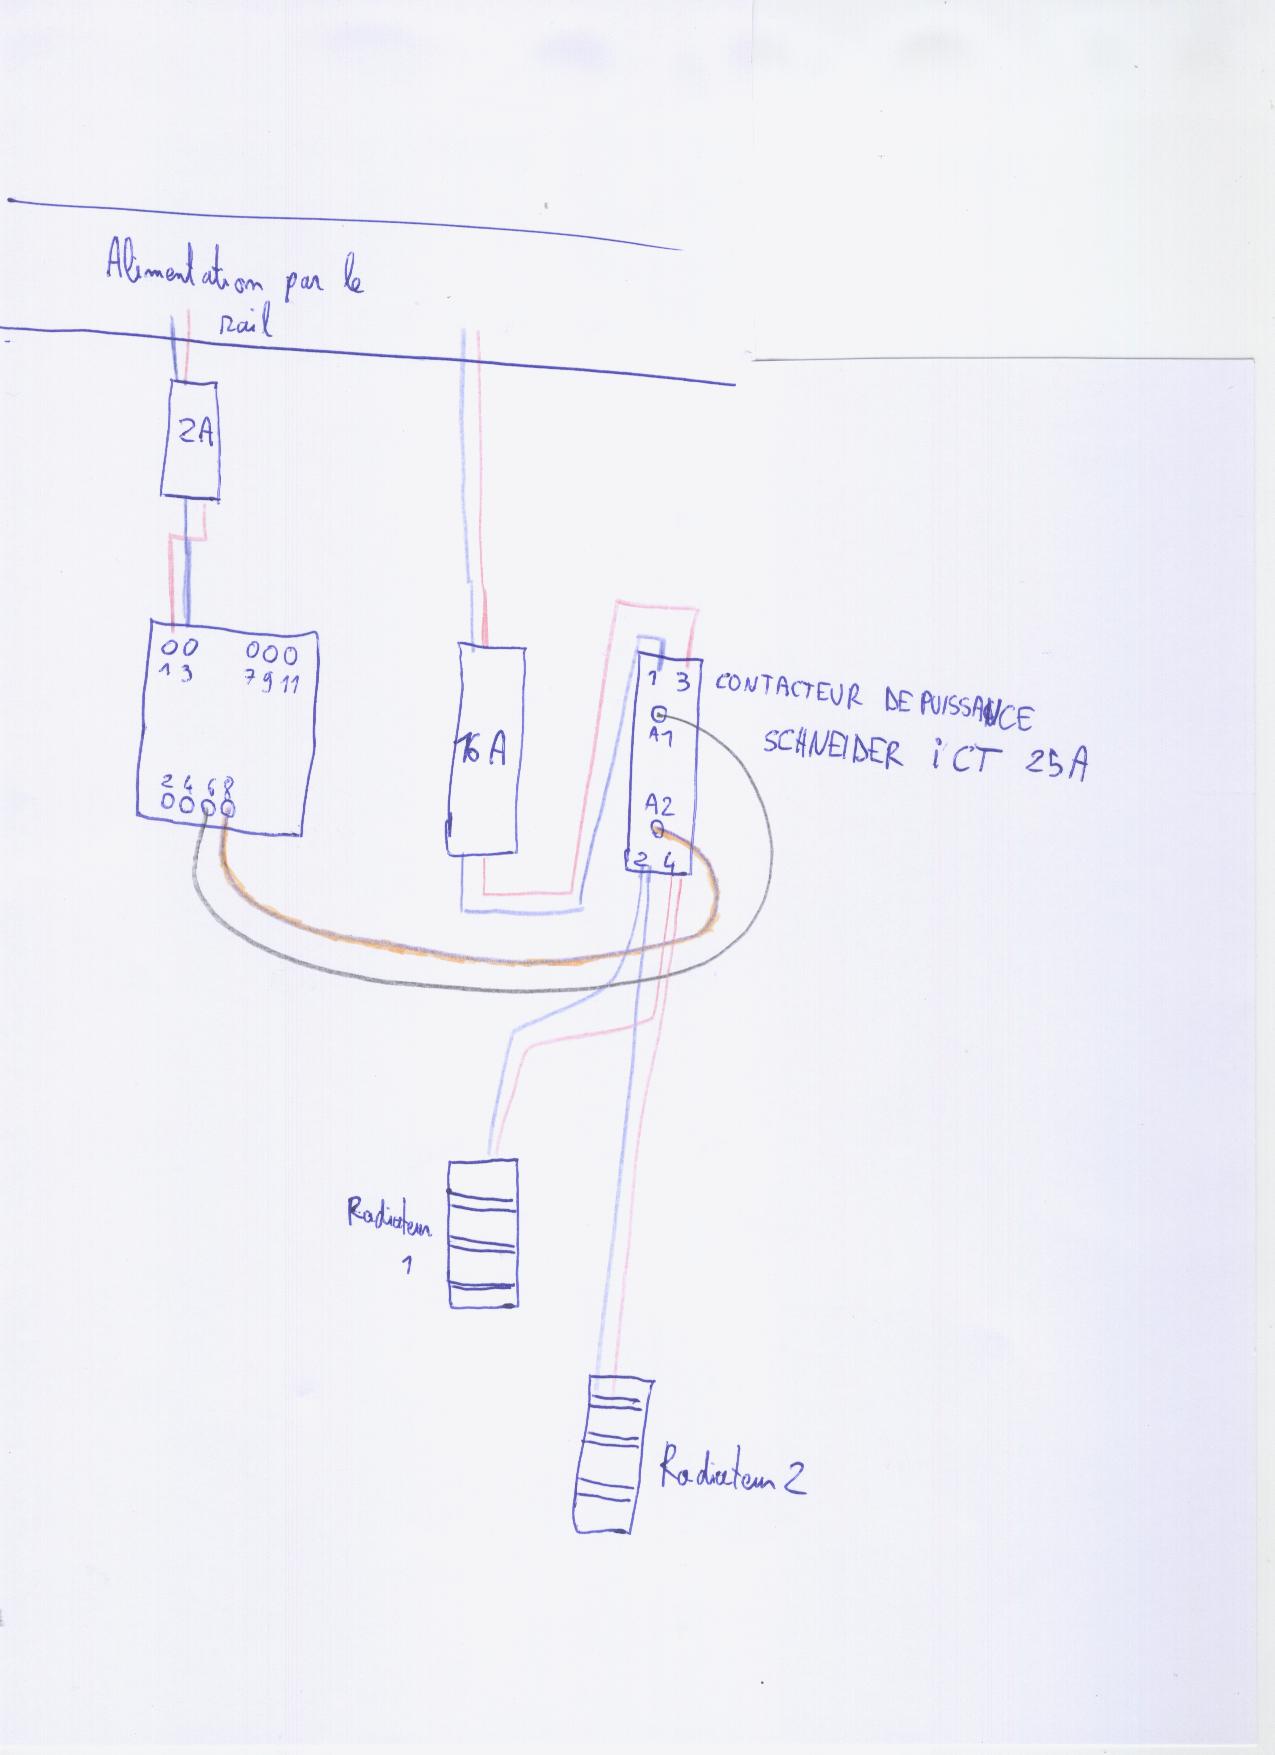 Alimentation par le
rail
2A
1 3 7 9 11
2 4 6 8
16A
1 3
A1
A2
2 4
CONTACTEUR DE PUISSANCE
SCHNEIDER iCT 25A
Radiateur
1
Radiateur 2